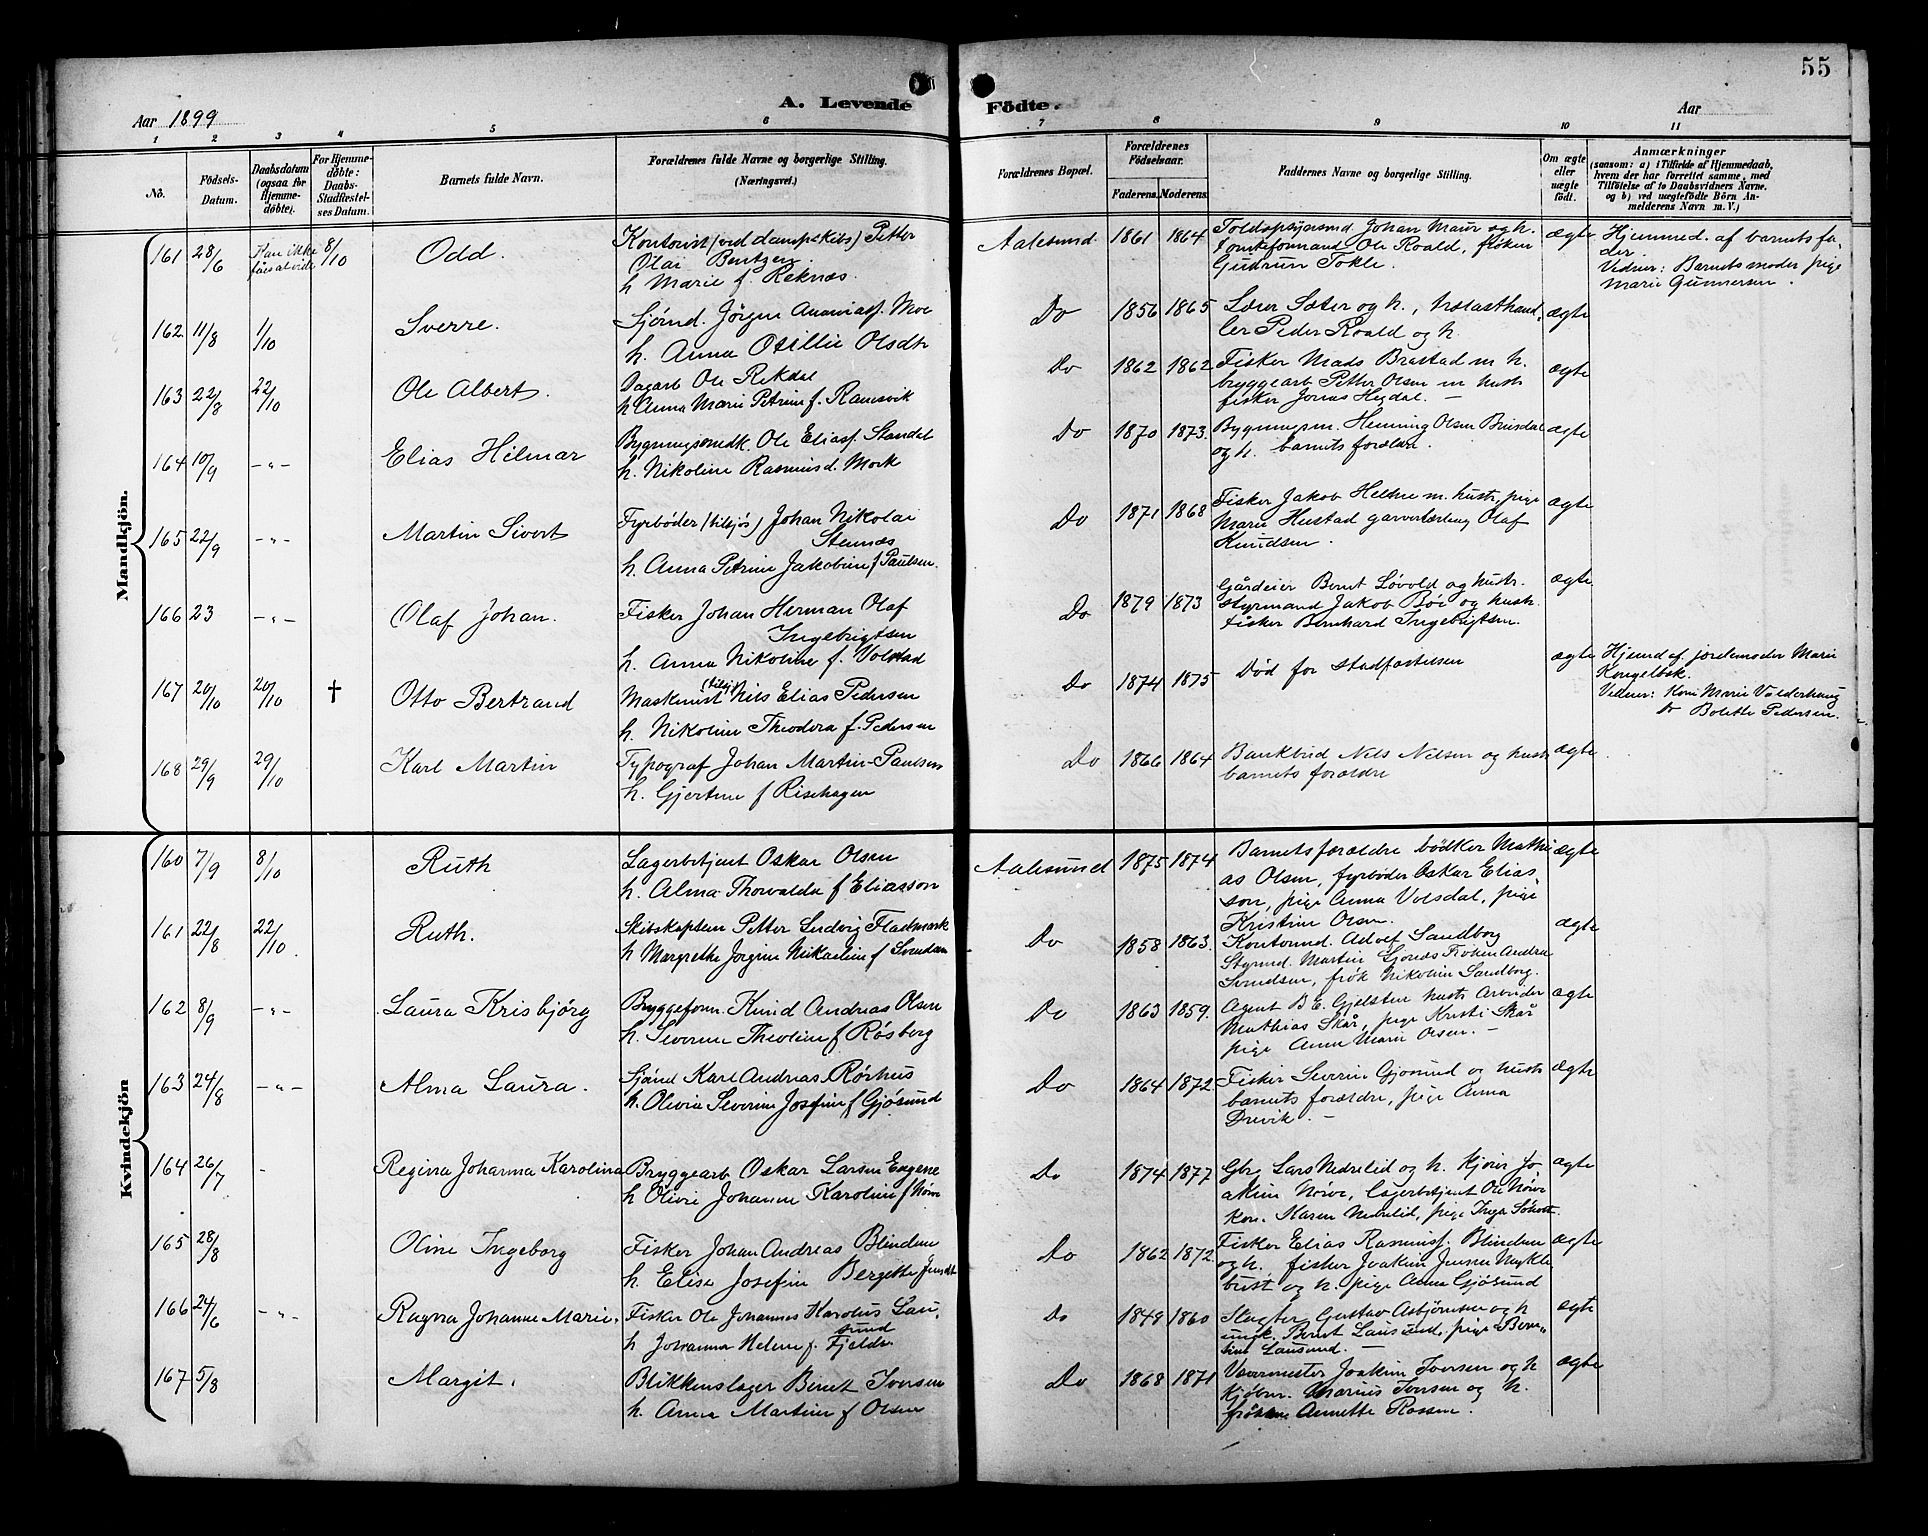 55
A. Levende Födte.
Aar 1899
Aar
1 2 3 4 5 6 7 8 9 10 11
No.
Födsels-Datum.
Daabsdatum (ogsaa for Hjemmedøbte).
For Hjemmedøbte: Daabs-Stadfæstelses Datum.
Barnets fulde Navn.
Forældrenes fulde Navne og borgerlige Stilling. (Næringsvei.)
Forældrenes Bopæl.
Forældrenes Födselsaar.
Faderens. Moderens.
Faddernes Navne og borgerlige Stilling.
Om ægte eller uægte født.
Anmærkninger
(saasom: a) i Tilfælde af Hjemmedaab, hvem der har forrettet samme, med Tilföielse af to Daabsvidners Navne, og b) ved uægtefödte Börn Anmelderens Navn m. V.)
Mandkjön.
161 28/6 8/10 Odd.
Kontorist (ved dampskibs) Petter
Olai Bentzen
h Marie f. Reknæs.
Aalesund 1861 1864
Toldopsynsmd. Johan Maur og h.
Tomteformand Ole Roald, frøken
Gudrun Tokle.
ægte
Hjemmed. af barnets fader.
Vidner: Barnets moder, pige
Marie Gunnersen.
162 11/8 1/10 Sverre.
Sjömd. Jörgen Ananiasf. Moe
h. Anna Otillie Olsdtr
Do 1856 1865
Lærer Sæter og h., trælasthand-
ler Peder Roald og h.
ægte
163 22/8 22/10 Ole Albert.
Dagarb Ole Rekdal
h Anna Marie Petrine f. Ramsvik
Do 1862 1862
Fisker Mads Brastad m h.
bryggearb Petter Olsen m hustr
fisker Jonas Hegdal. —
ægte
164 10/9 -"- Elias Hilmar
Bygningssnedk. Ole Eliasf. Standal
h. Nikoline Rasmusd. Mork
Do 1870 1873.
Bygningssn. Henning Olsen Brusdal
og h. barnets forældre.
ægte
165 22/9 -"- Martin Sivert
Fyrböder (tilsjös) Johan Nikolai
Stennæs
h. Anna Petrine Jakobine f Paulsen.
Do 1871 1868
Fisker Jakob Heltne m. hustr, pige
Marie Hustad garverlærling Olaf
Knudsen.
ægte
166 23 -"- Olaf Johan.
Fisker Johan Herman Olaf
Ingebrigtsen
h. Anna Nikoline f. Volstad
Do 1879 1873
Gårdeier Bernt Lövold og hustr.
styrmand Jakob Böe og hustr.
fisker Bernhard Ingebrigtsen.
ægte
167 20/10 20/10 † Otto Bertrand
Maskinist (tilsjös) Nils Elias Pedersen
h. Nikoline Theodora f. Pedersen
Do 1874 1875
Död for stadfæstelsen
ægte
Hjemd af jordemoder Marie
Kongelbæk.
Vidner: Kone Marie Valderhaug
Do Bolette Pedersen.
168 29/9 29/10 Karl Martin
Typograf Johan Martin Paulsen
h. Gjertine f Risehagen
Do 1866 1864
Bankbud Nils Nilsen og hustr
barnets forældre
ægte
Kvindekjön
160 7/9 8/10 Ruth
Lagerbetjent Oskar Olsen
h. Alma Thorvalda f Eliasson
Aalesund 1875 1874
Barnets forældre bödker Mathi-
as Olsen, fyrböder Oskar Elias-
son, pige Anna Volsdal, pige
Kristine Olsen.
ægte
161 22/8 22/10 Ruth.
Skibskaptein Petter Ludvig Fladmark
h Margrethe Jörgine Nikoline f Svendsen
Do 1858 1863.
Kontormd. Adolf Sandborg
Styrmd. Martin Frøken Andrea
Svendsen, frök Nikoline Sandborg.
ægte
162 8/9 -"- Laura Krisbjörg
Bryggeform. Knud Andreas Olsen
h. Severine Theoline f Rösberg
Do 1863 1859.
Agent B E. Gjelsten hustr Arbeider
Mathias Skår, pige Kristi Skår
pige Anna Marie Olsen. —
ægte
163 24/8 -"- Alma Laura.
Sjömd Karl Andreas Rörhus
h. Olivia Severine Josefine f Gjösund
Do 1864 1872
Fisker Severin Gjösund og hustr
barnets forældre, pige Anna
Drivik. —
ægte
164 26/7 - Regina Johanna Karolina
Bryggearb Oskar Larsen Engene
h Olive Johanne Karoline f Nörve
Do 1874 1877
Gbrg Lars Nedrelid og h. Kjörer Jo-
akim Nörve, lagerbetjent Ole Nörve
kone Maren Nedrelid, pige Inga
ægte
165 28/8 Oline Ingeborg
Fisker Johan Andreas Blindem
h. Elise Josefine Bergette
Do 1862 1872
Fisker Elias Rasmusf. Blindem
og h. fisker Joakim Jensen Mykle-
bust og h. pige Anna Gjösund
ægte
166 24/6 -"- Ragna Johanne Marie.
Fisker Ole Johannes Karolus Lau-
sund
h Johanna Helene f. Fjelde
Do 1849 1860
Slagter Gustav Asbjörnsen og h
ungk. Bernt Lausund, pige Bern-
tine Lausund. —
ægte
167 5/8 Margit.
Blikkenslager Bernt Iversen
h. Anna Martine f Olsen
Do 1868 1871
Joakim Iversen og h
Marius Iversen og h.
frøken Annette Rossen.
ægte